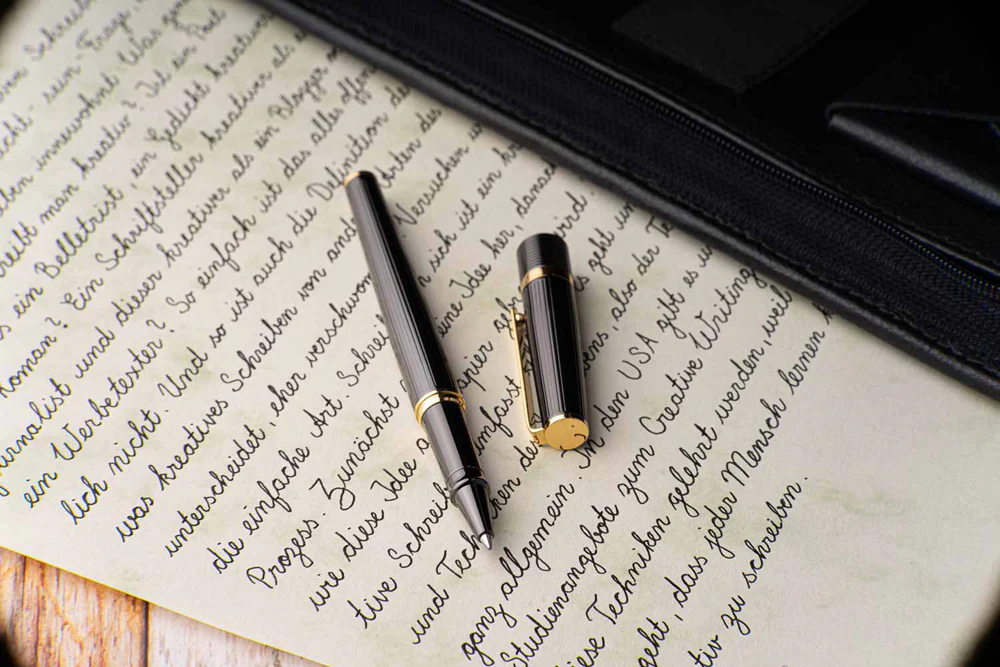 Schreib
icht- sein- Frage,
innewohnt. Was
reibt man kreativ? Ist ein Poet
ein Belletrist, ein Gedicht kreativ
Roman? Ein Schriftsteller kreativer als
urnalist und dieser kreativer als ein Blogger
ein Werbetexter? So einfach ist das alles offen
lich nicht. Und so ist auch die Definition de
was kreatives Schreiben von and rten des
unterscheidet, eher verschwom Versuchen
die einfache Art. Schrei sich ist ein kr
Prozes. Zunächst eine Idee her, dan
wie diese Idee a apier wird
tive Schreib mfasst geht um
und Tech ken de ens, also der Te
ganz allgemein. In den USA gibt es u
Studienangebote zum Creative Writing
iese Techniken gelehrt werden, weil
geht, dass jeder Mensch lernen k
tiv zu schreibn.